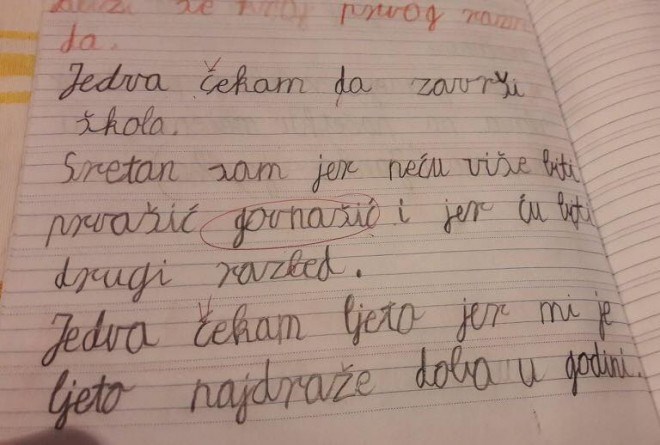 se kraj prvog razre
da.
Jedva čekam da završi
škola.
Sretan sam jer neću više biti
prvašić govnašić i jer ću biti
drugi razred.
Jedva čekam ljeto jer mi je
ljeto najdraže doba u godini.